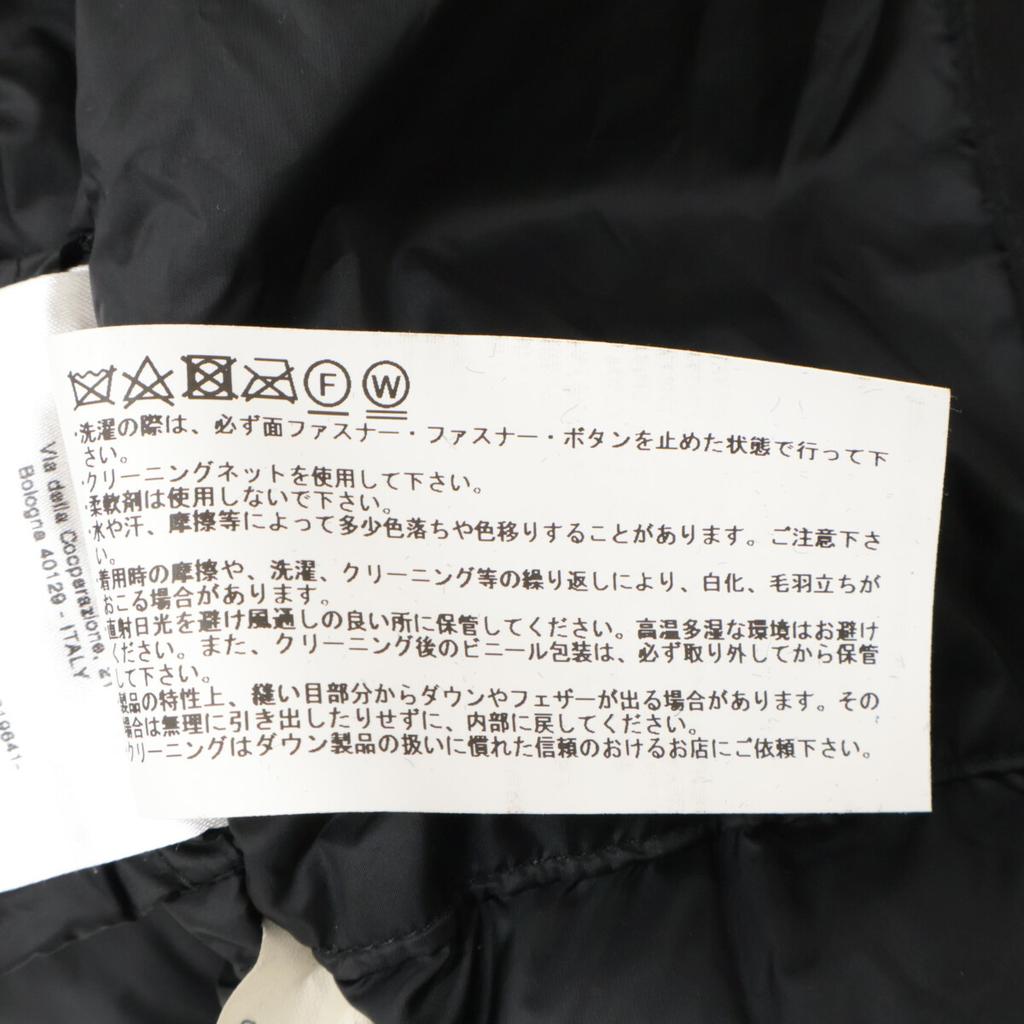 F W
・洗濯の際は、必ず面ファスナー・ファスナー・ボタンを止めた状態で行って下
さい。
・クリーニングネットを使用して下さい。
・柔軟剤は使用しないで下さい。
・水や汗、摩擦等によって多少色落ちや色移りすることがあります。ご注意下さ
い。
・着用時の摩擦や、洗濯、クリーニング等の繰り返しにより、白化、毛羽立ちが
おこる場合があります。
直射日光を避け風通しの良い所に保管してください。高温多湿な環境はお避け
ください。また、クリーニング後のビニール包装は、必ず取り外してから保管
して下さい。
製品の特性上、縫い目部分からダウンやフェザーが出る場合があります。その
場合は無理に引き出したりせずに、内部に戻してください。
クリーニングはダウン製品の扱いに慣れた信頼のおけるお店にご依頼下さい。
Via della Cooperazione, 21
Bologna 40129 - ITALY